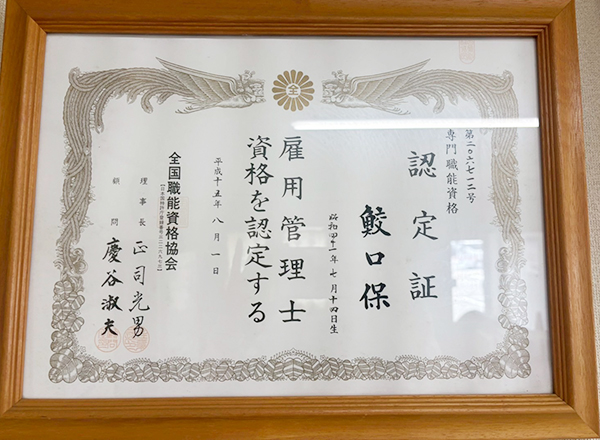 第二〇六七一二号
専門職能資格
認定証
鮫口保
昭和四十一年七月十四日生
雇用管理士
資格を認定する
平成十五年八月一日
全国職能資格協会
理事長 正司光男
顧問 慶谷淑夫
全